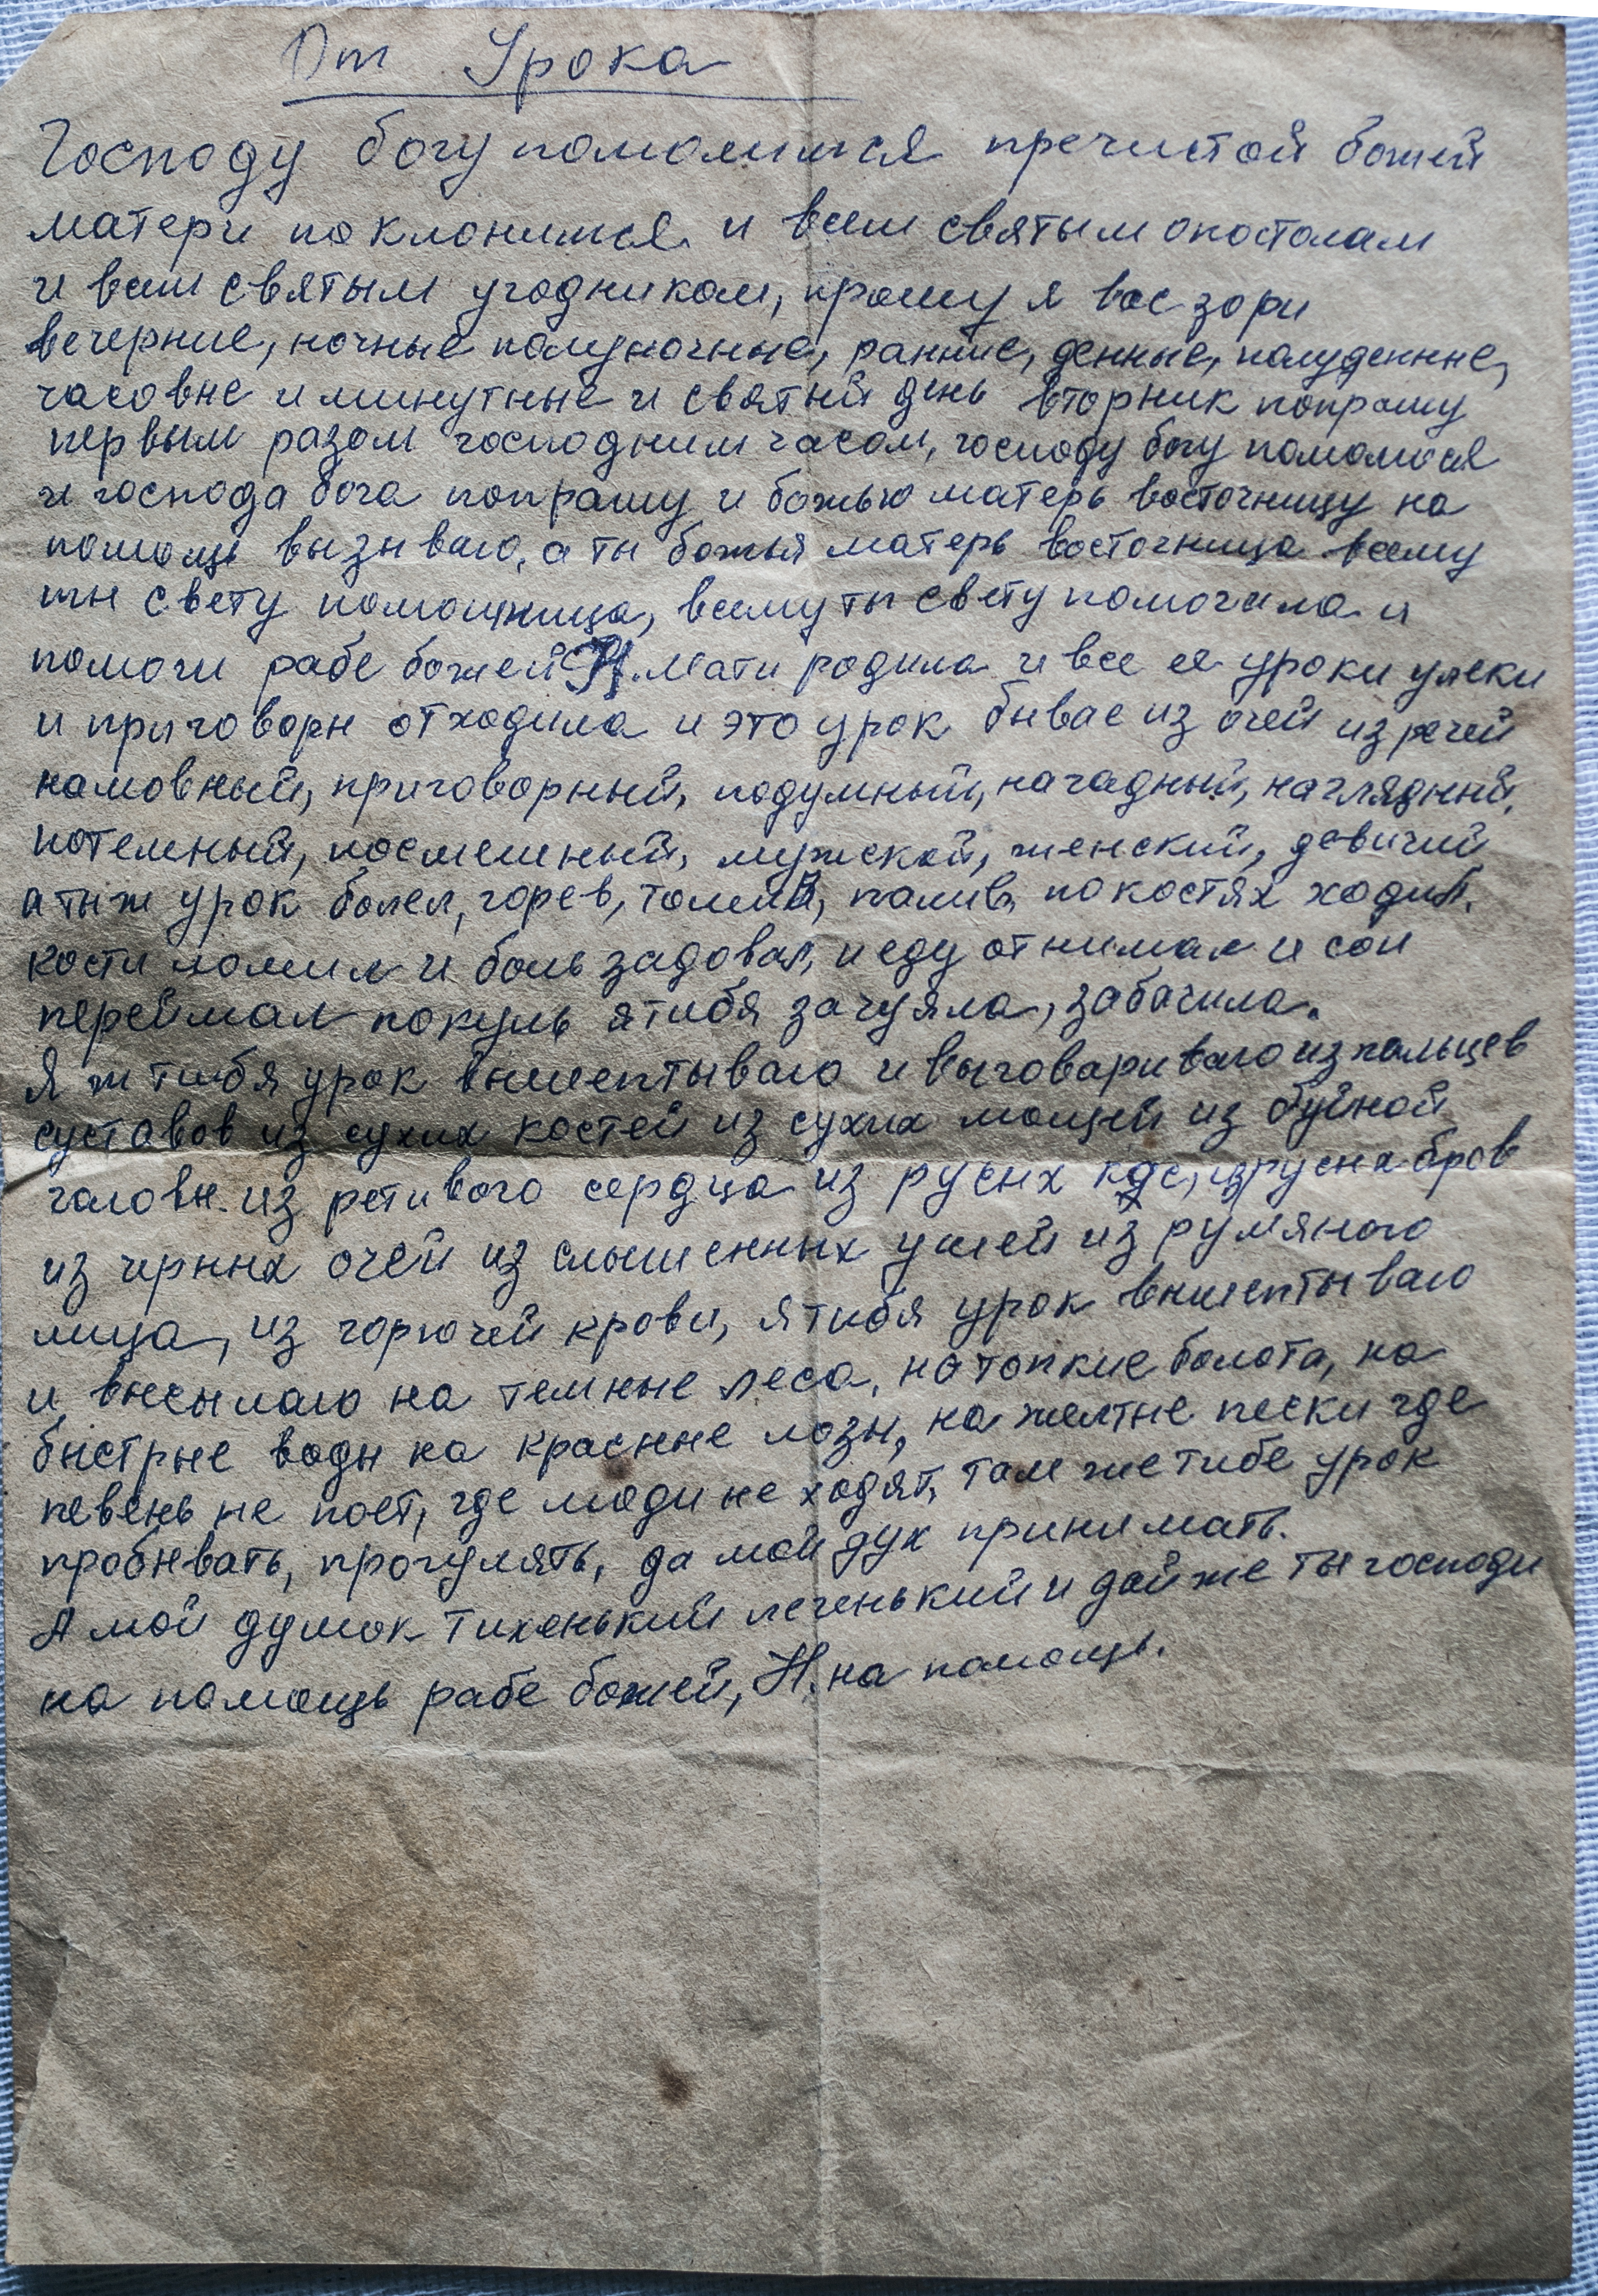 От Урока
Господу богу помолимся пречистой божей
матери поклонимся и всем святым опостолам
и всем святым угодником, прошу я вас зори
вечерние, ночные полуночные, ранние, денные, полуденные,
часовые и минутные и святый день вторник попрошу
первым разом господним часом, господу богу помолюся
и господа бога попрашу и божью матерь восточницу на
помощь вызываю, а ты божья матерь восточница всему
ты свету помощница, всему ты свету помогала и
помоги рабе божей Н. Мати родила и все ее уроки уляки
и приговоры отходила и это урок бывае из очей из речей
намовный, приговорный, подумный, нагадный, наглядный,
потемный, посмешный, мужской, женский, девичий
а ты ж урок болел, горев, томив, палив, по костях ходил,
кости ломил и боль задовал, и еду отнимал и сон
переймал покуль я тибя зачуяла, забачила.
Я ж тибя урок вышептываю и выговариваю из пальцев
суставов из сухих костей из сухих мощей из буйной
головы из ретивого сердца из русых кос, из русых бров
из черных очей из слышенных ушей из румяного
лица, из горючей крови, я тибя урок вышептываю
и высылаю на темные леса, на топкие болота, на
быстрые воды на красные лозы, на желтые пески где
певень не поет, где люди не ходят, там же тибе урок
пробывать, прогулять, да мой дух принимать.
А мой душок тихенький легенький и дай же ты господи
на помощь рабе божей, Н. на помощь.